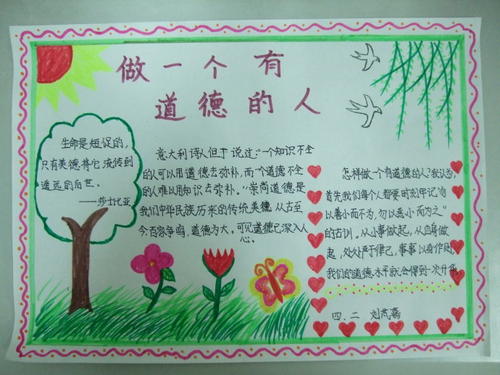 做一个有
道德的人
生命是短促的,
只有美德将它流传到
遥远的后世。
——莎士比亚
意大利诗人但丁说过:“一个知识不全
的人可以用道德去弥补,而一个道德不全
的人难以用知识去弥补。”崇尚道德是
我们中华民族历来的传统美德,从古至
今百家争鸣,道德为大,可见道德已深入人
心。
怎样做一个有道德的人?我认为,
首先我们每个人都要时刻牢记“勿
以善小而不为,勿以恶小而为之”
的古训。从小事做起,从自身做
起,处处严于律己,事事以身作则,
我们的道德水平就会得到一次升华。
四.二 刘